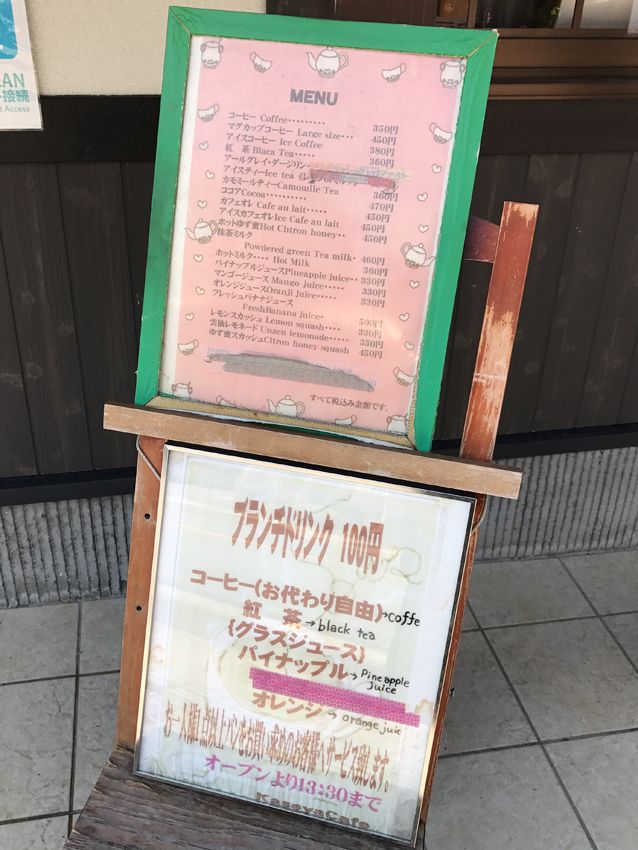 LAN
接続
t Access
MENU
コーヒー Coffee‥‥‥‥‥ 350円
マグカップコーヒー Large size‥‥ 450円
アイスコーヒー Ice Coffee 380円
紅 茶 Blaca Tea‥‥‥ 360円
アールグレイ・ダージリン
アイスティー Ice tea
カモミールティーCamomile Tea 360円
ココアCocoa‥‥‥‥‥ 470円
カフェオレ Cafe au lait‥‥‥ 450円
アイスカフェオレIce Cafe au lait 450円
ホットゆず蜜Hot Chtron honey‥ 450円
抹茶ミルク
Powdered green Tea milk・ 460円
ホットミルク‥‥ Hot Milk 360円
パイナップルジュースPineapple juice‥ 330円
マンゴージュース Mango juice‥‥ 330円
オレンジジュースOranji juice‥‥‥ 330円
フレッシュバナナジュース
FreshBanana juice・ 500円
レモンスカッシュ Lemon squash‥‥ 330円
雲仙レモネード Unzen lemonade‥‥‥ 350円
ゆず蜜スカッシュCitron honey squash 450円
すべて税込み金額です。
ブランチドリンク 100円
コーヒー(お代わり自由)→coffe
紅 茶→black tea
{グラスジュース}
パイナップル→Pineapple juice
オレンジ→orange juic
お一人様1点以上パンをお買い求めのお客様へサービス致します。
オープンより13:30まで
KaseyaCafe